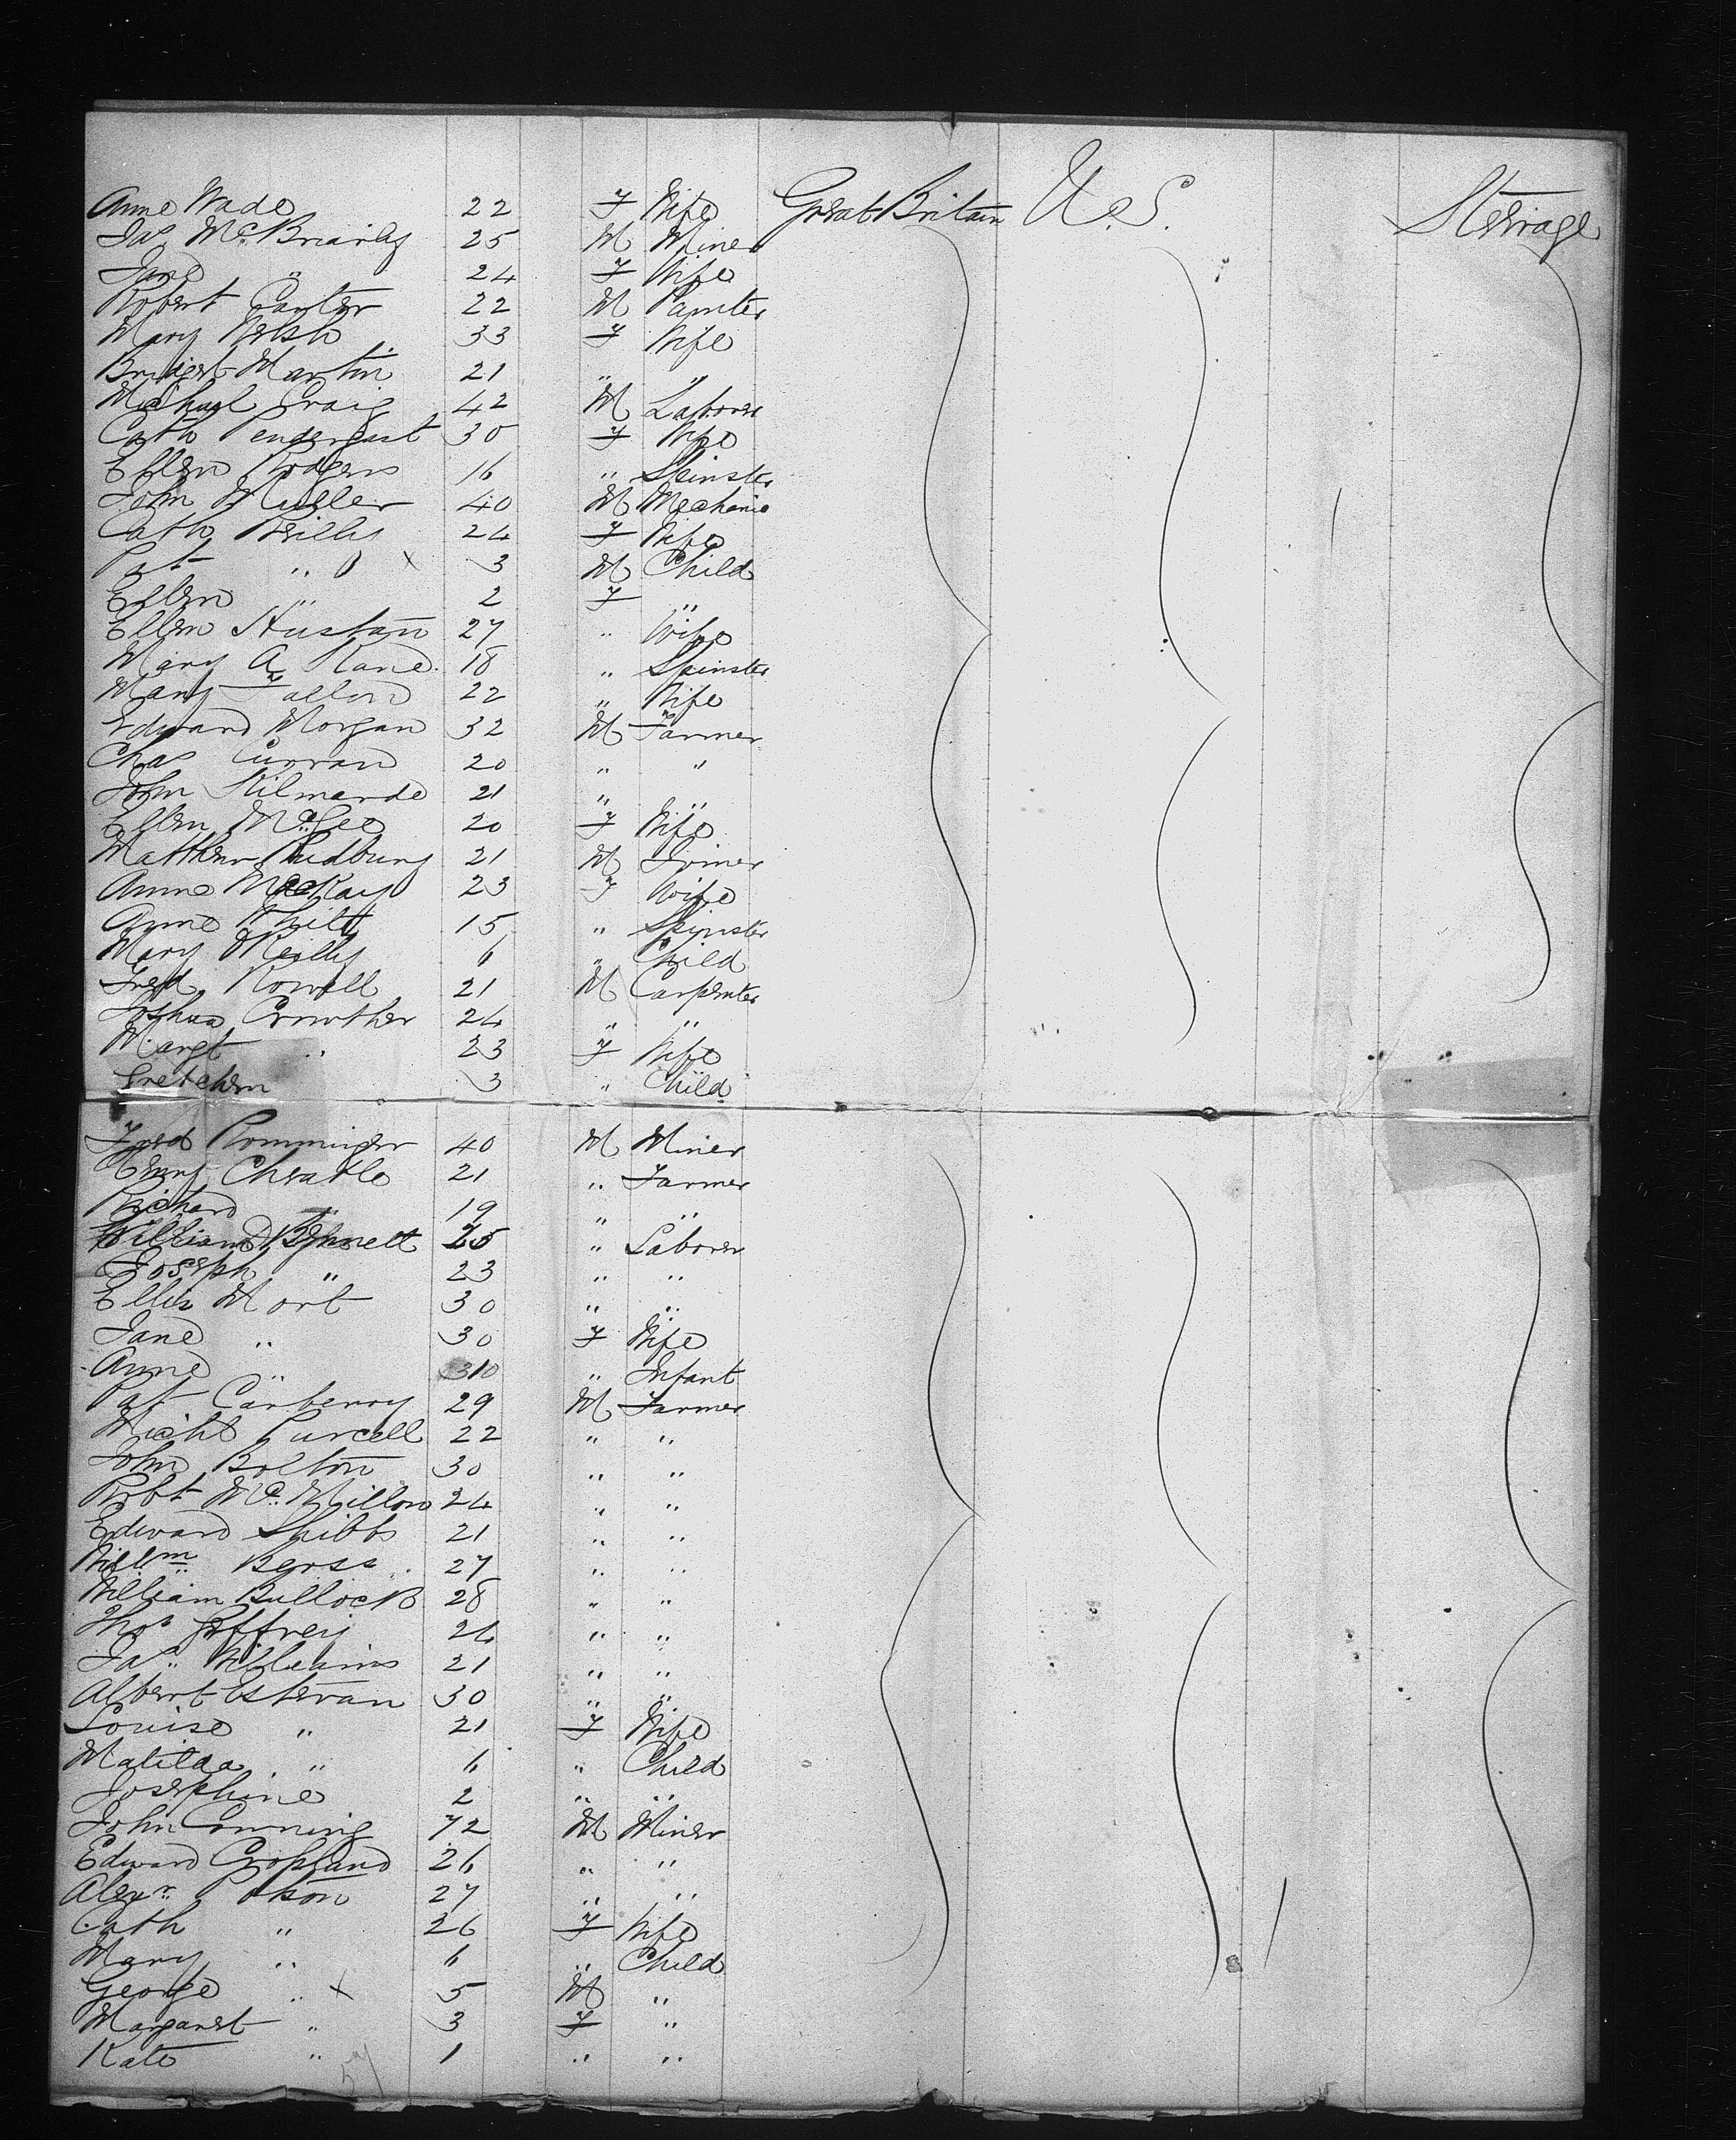 Anne Wade 22 F Wife Great Britain U.S. Steerage
Jas McBriarly 25 M Miner
Jane " 24 F Wife
Robert Carter 22 M Painter
Mary Welsh 33 F Wife
Bridget Martin 21 " "
Michael Craig 42 M Laborer
Cath Pendergast 30 F Wife
Ellen Rodgers 16 " Spinster
John Miller 40 M Mechanic
Cath Reilly 24 F Wife
Pat " x 3 M Child
Ellen " 2 F "
Ellen Hustan 27 " Wife
Mary A Kane 18 " Spinster
Mary Fallon 22 " Wife
Edward Morgan 32 M Farmer
Chas Curran 20 " "
John Kilmarde 21 " "
Ellen McGee 20 F Wife
Matthew Pudbury 21 M Joiner
Anne McKay 23 F Wife
Anne 15 " Spinster
Mary Reilly 6 " Child
Fred Rowell 21 M Carpenter
Joshua Crowther 24 " "
Margt " 23 F Wife
Gretchen 3 " Child
Fred Romminger 40 M Miner
Henry Cheatle 21 " Farmer
Richard " 19 " "
William Bennett 25 " Laborer
Joseph " 23 " "
Ellis Mort 30 " "
Jane " 30 F Wife
Anne " 10 " Infant
Pat Carberry 29 M Farmer
Michl Purcell 22 " "
John Bolton 30 " "
Robt McMillon 24 " "
Edward Shibbs 21 " "
Willm 27 " "
William Bullock 28 " "
Thos Joffrey 24 " "
Jas Williams 21 " "
Albert Estevan 30 " "
Louise " 21 F Wife
Matilda " 6 " Child
Josephine 2 " "
John Conning 72 M Miner
Edward Cropland 26 " "
Alexr 27 " "
Cath " 26 F Wife
Mary " 6 " Child
George " x 5 M "
Margaret " 3 F "
Kate " 1 " "
57